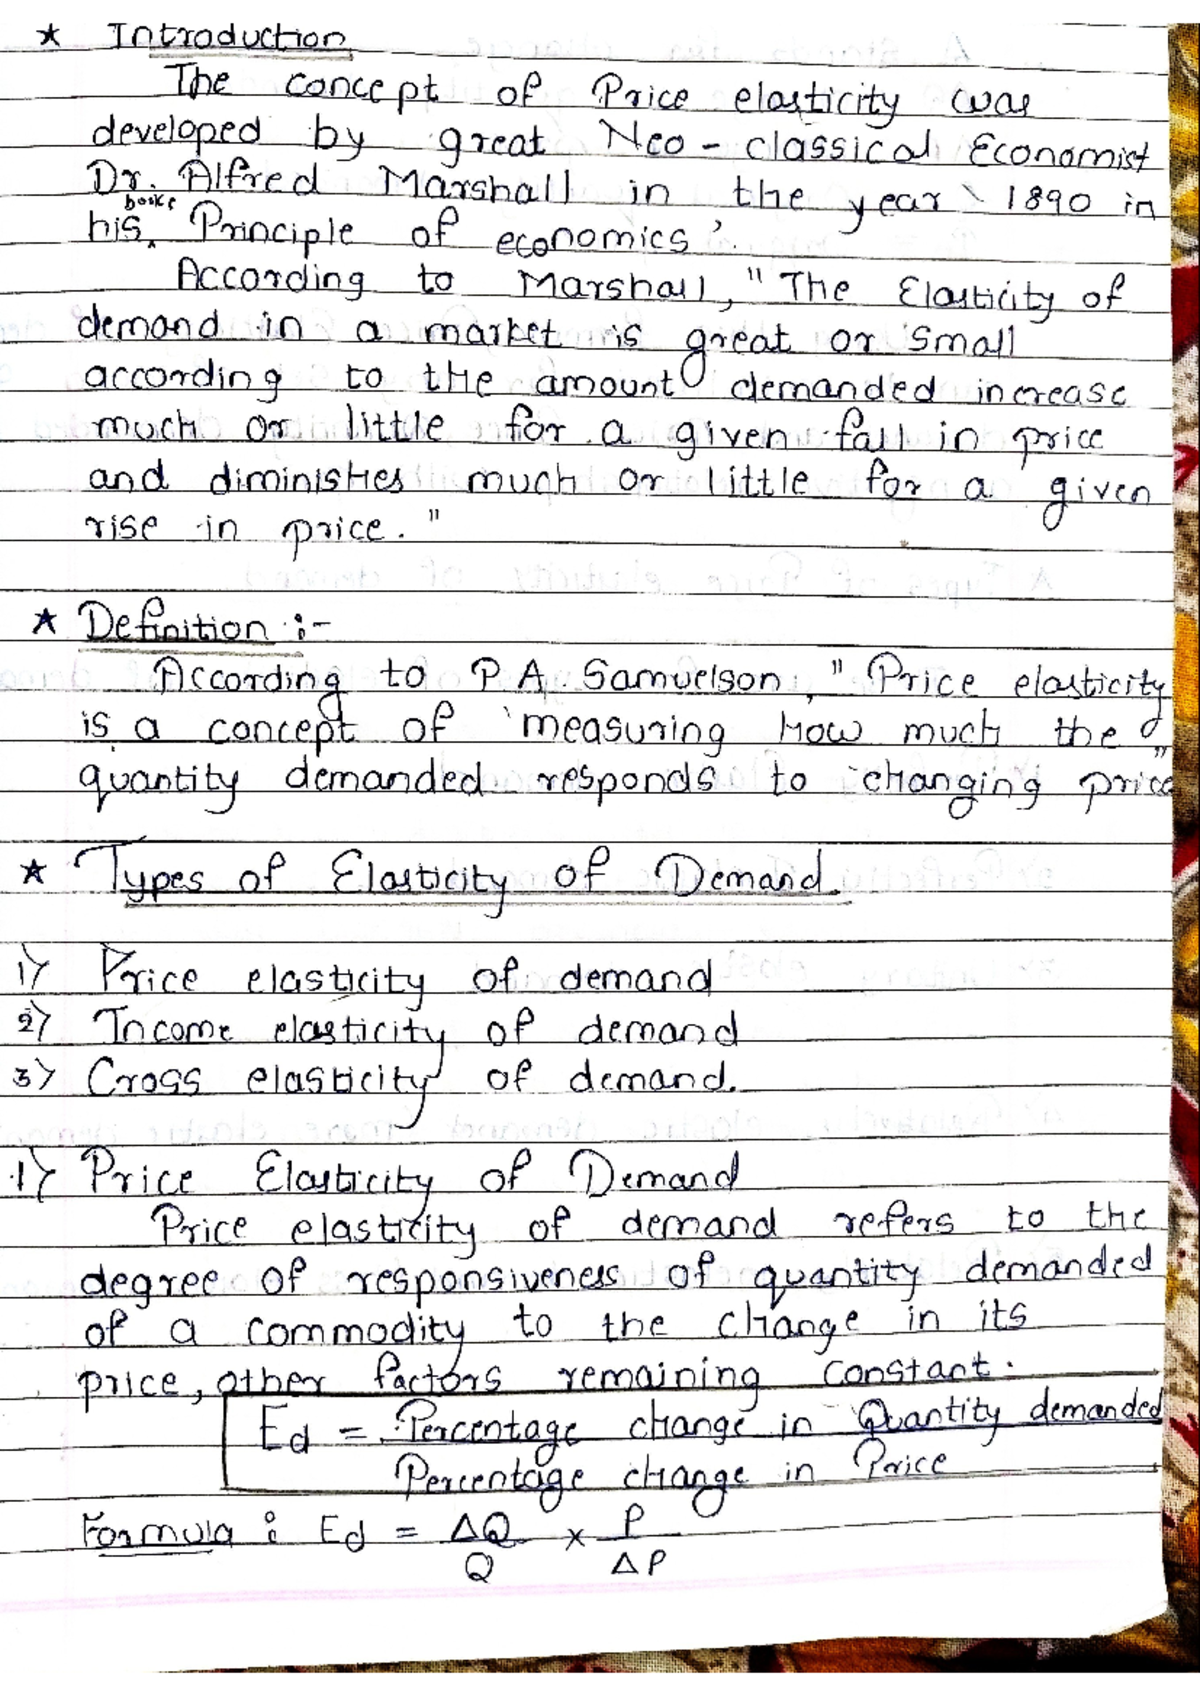 ★ Introduction
The concept of Price elasticity was
developed by great Neo - classical Economist
Dr. Alfred Marshall in the year 1890 in
his books Principle of economics'.
According to Marshall, "The Elasticity of
demand in a market is great or small
according to the amount demanded increase
much or little for a given fall in price
and diminishes much or little for a given
rise in price."
★ Definition :-
According to P.A. Samuelson, "Price elasticity
is a concept of 'measuring How much the
quantity demanded responds to changing price"
★ Types of Elasticity of Demand.
1) Price elasticity of demand
2) Income elasticity of demand
3) Cross elasticity of demand.
1) Price Elasticity of Demand
Price elasticity of demand refers to the
degree of responsiveness of quantity demanded
of a commodity to the change in its
price, other factors remaining constant.
Ed = Percentage change in Quantity demanded
Percentage change in Price
Formula : Ed = ΔQ × P
Q ΔP